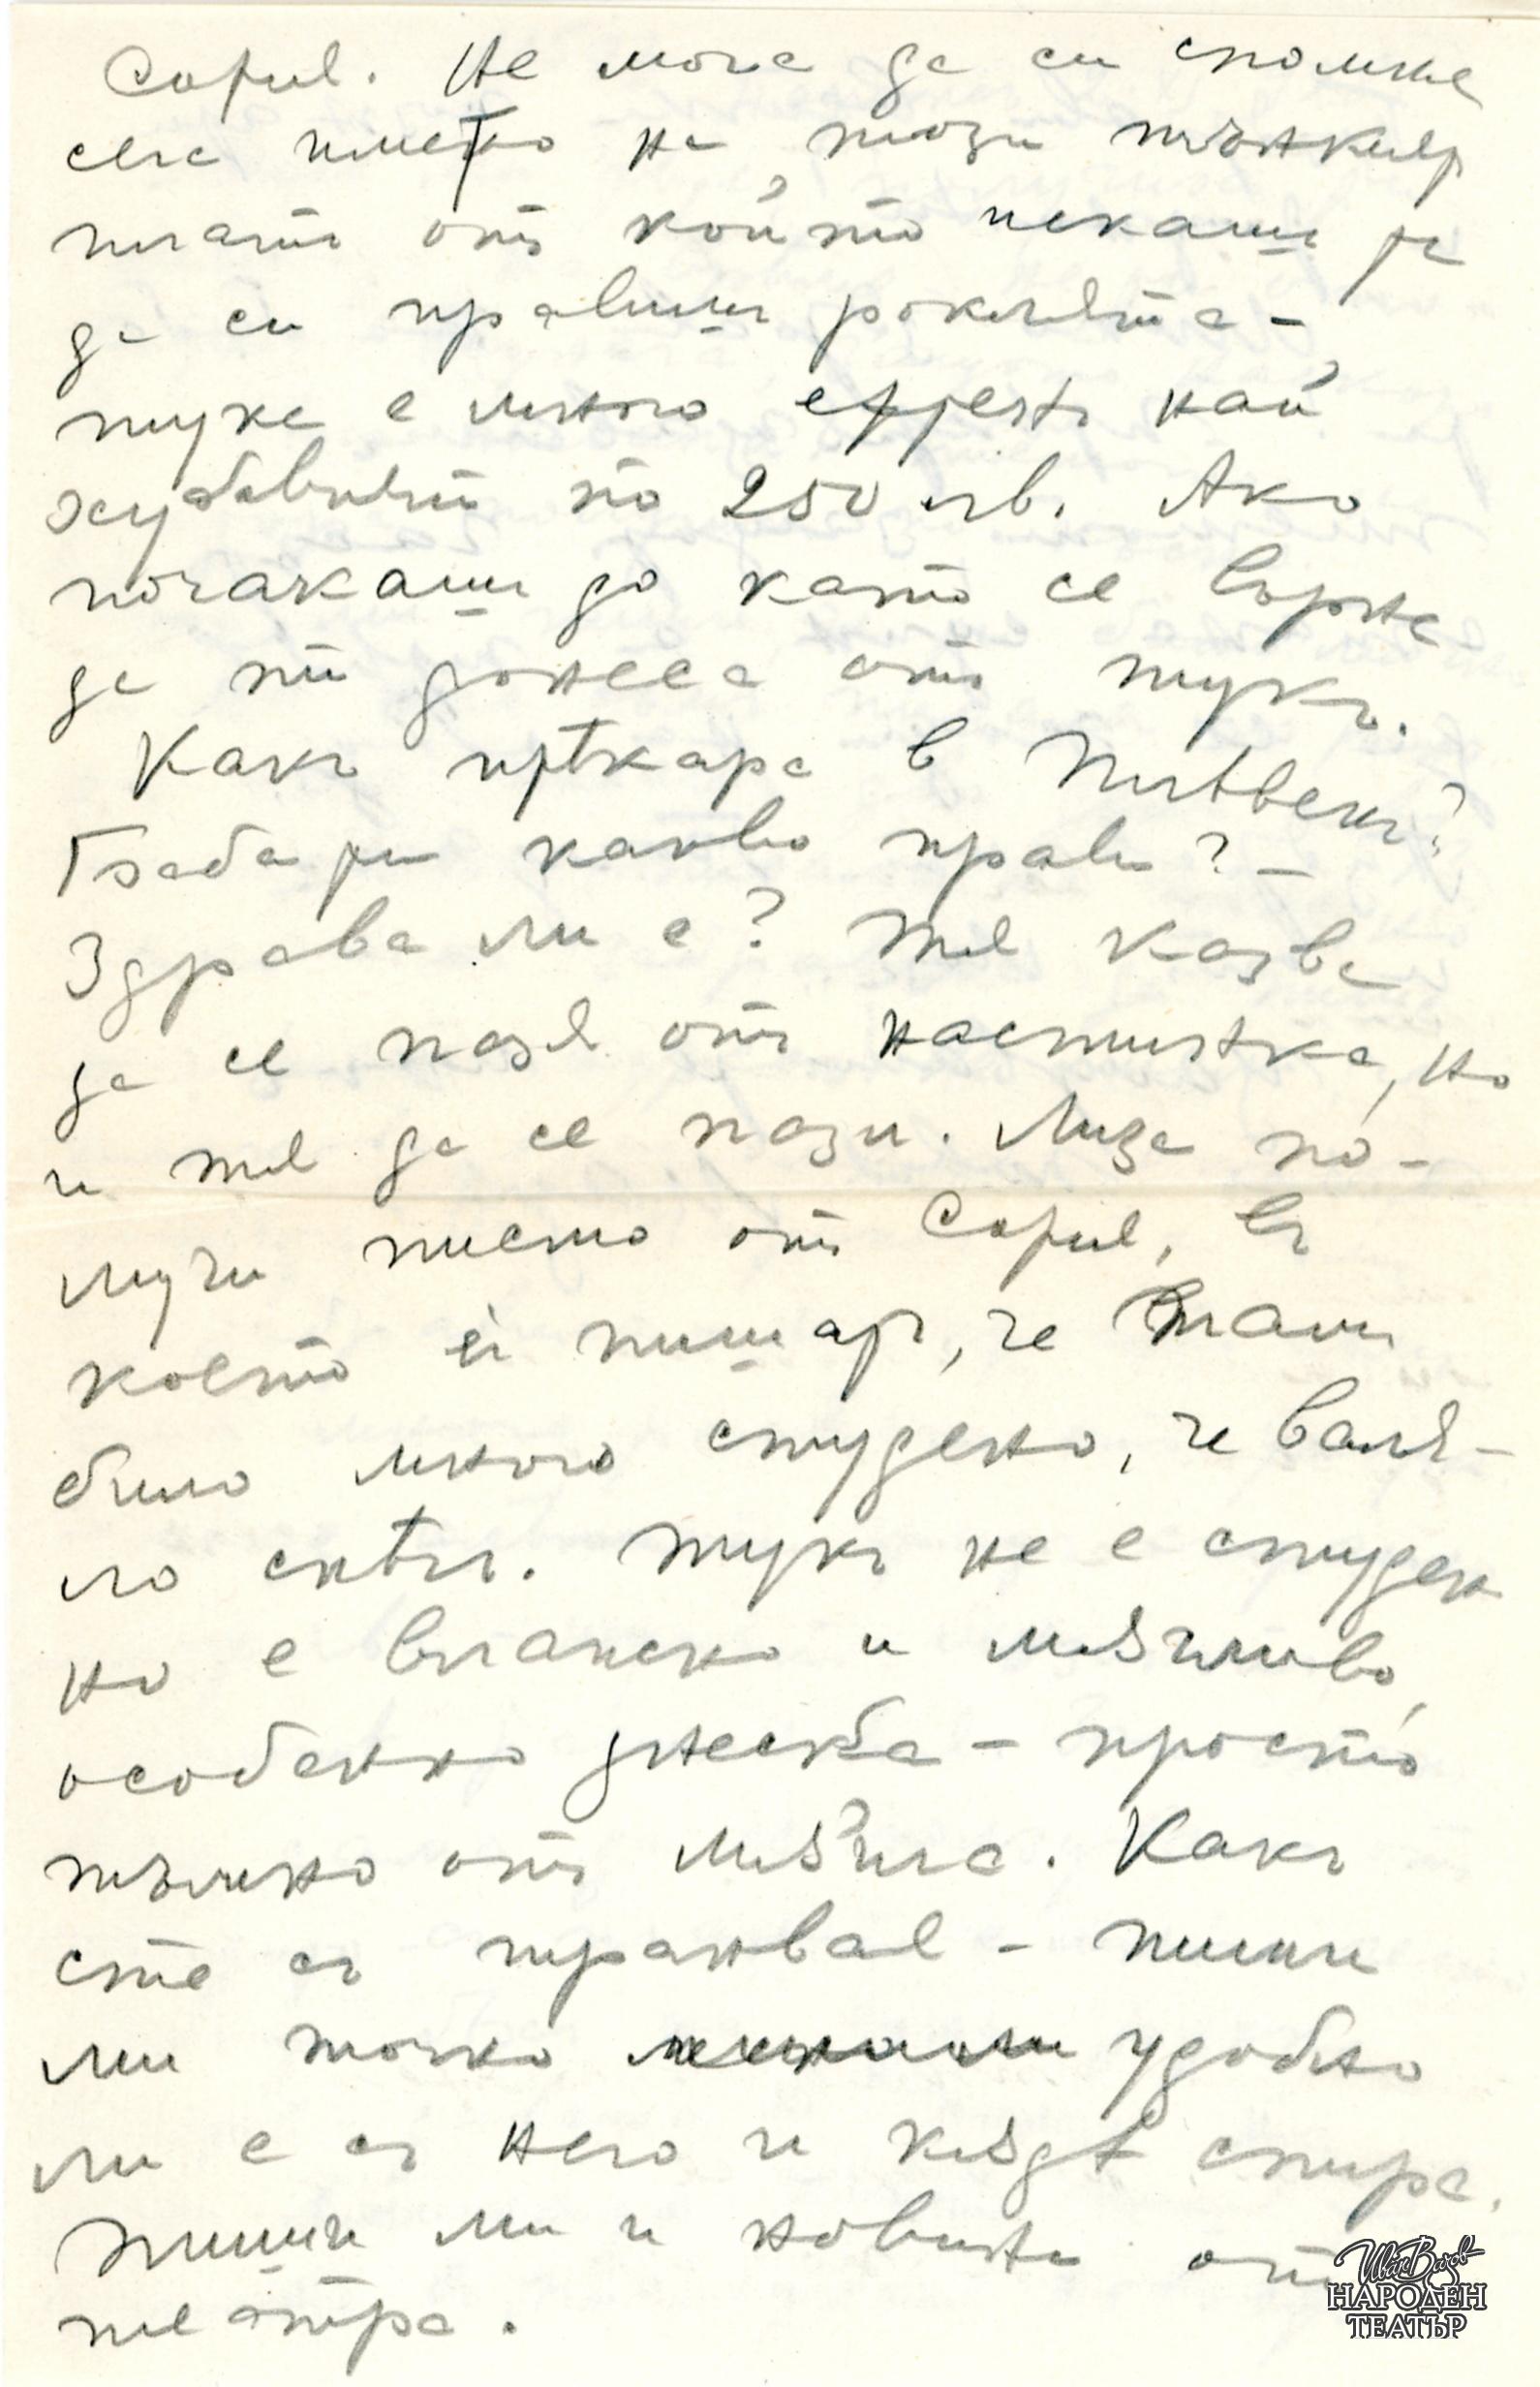 София. Не мога да си спомня
сега името на този тънкия
платъ отъ който искаше
да си правишъ роклята –
тука е много най
хубавиятъ по 250 лв. Ако
почакашъ до като се върна
да ти донеса отъ тукъ.
Какъ прѣкара в Плѣвенъ?
Габари какво прави? –
Здрава ли е? Тя казва
да се пазя отъ настинка, но
и тя да се пази. Лиза по-
лучи писмо отъ София, въ
което ѝ пишатъ, че тамъ
било много студено, че валя-
ло снѣгъ. Тукъ не е студен
но е влажно и мъгливо,
особенно днеска – просто
тъмно отъ мъгла. Какъ
сте съ трамвая – пиши
ми точно удобно
ли е съ него и кѫдѣ спира.
Пиши ми и новини отъ
театра.
Иван Вазов
НАРОДЕН
ТЕАТЪР